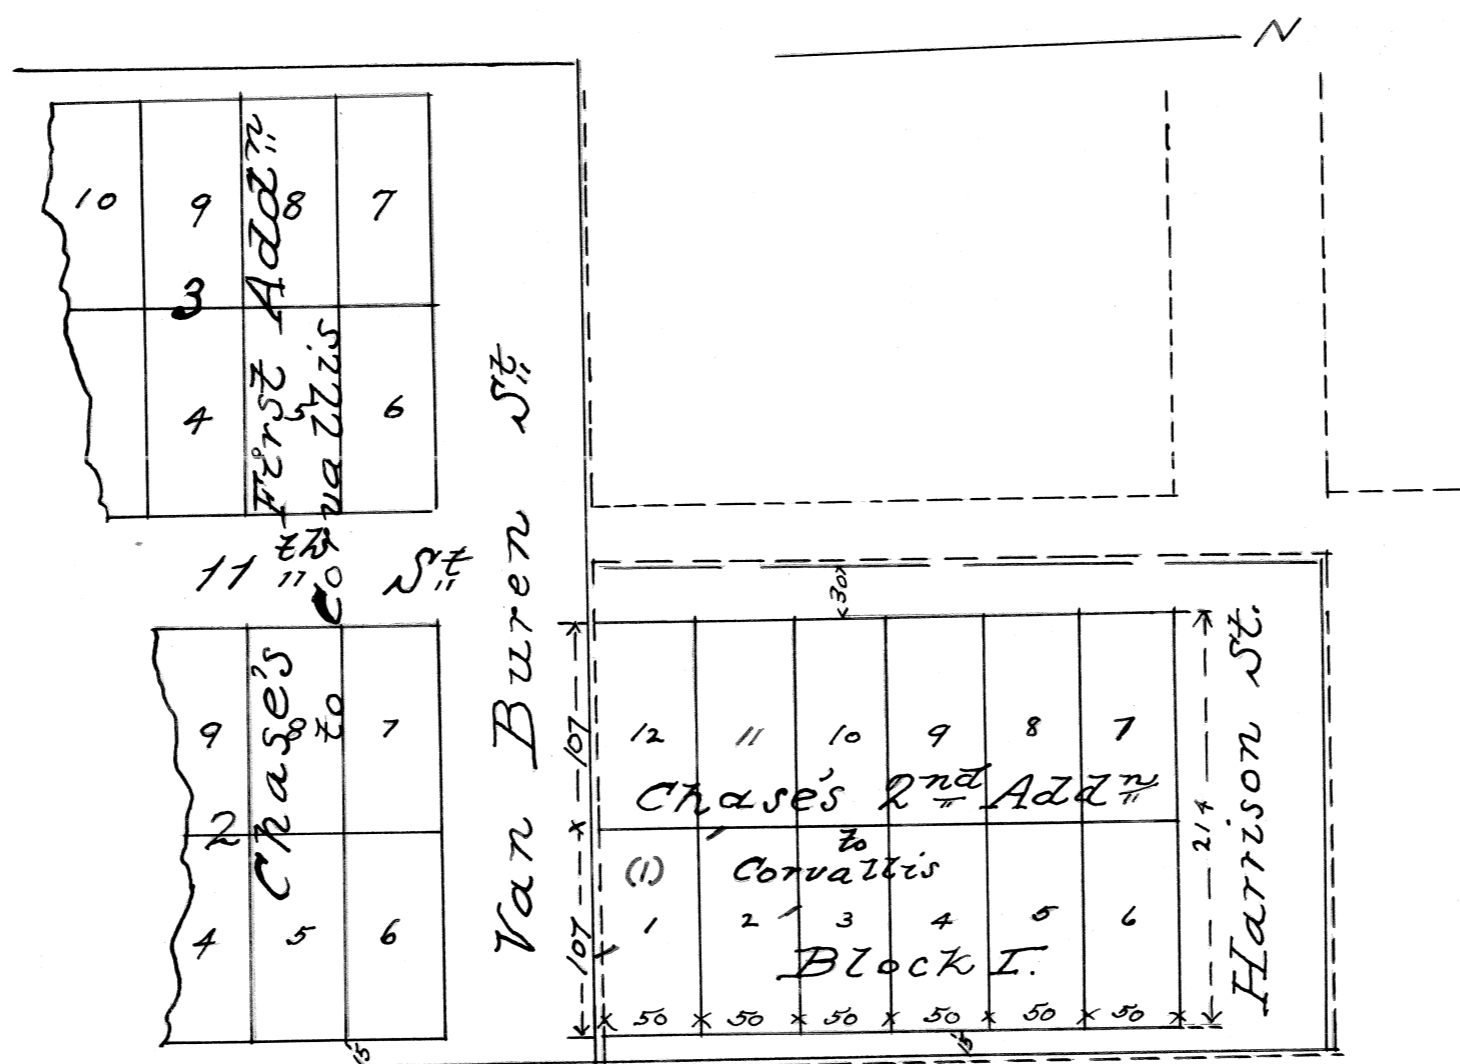 N
10 9 8 7
3
4 5 6
Chase's First Add<u>n</u>
to Corvallis
11<u>th</u> St
9 8 7
2
4 5 6
15
Van Buren St
107 107
30
12 11 10 9 8 7
Chase's 2nd Addn
to
(1) Corvallis
1 2 3 4 5 6
Block I.
50 50 50 50 50 50
15
214
Harrison St.